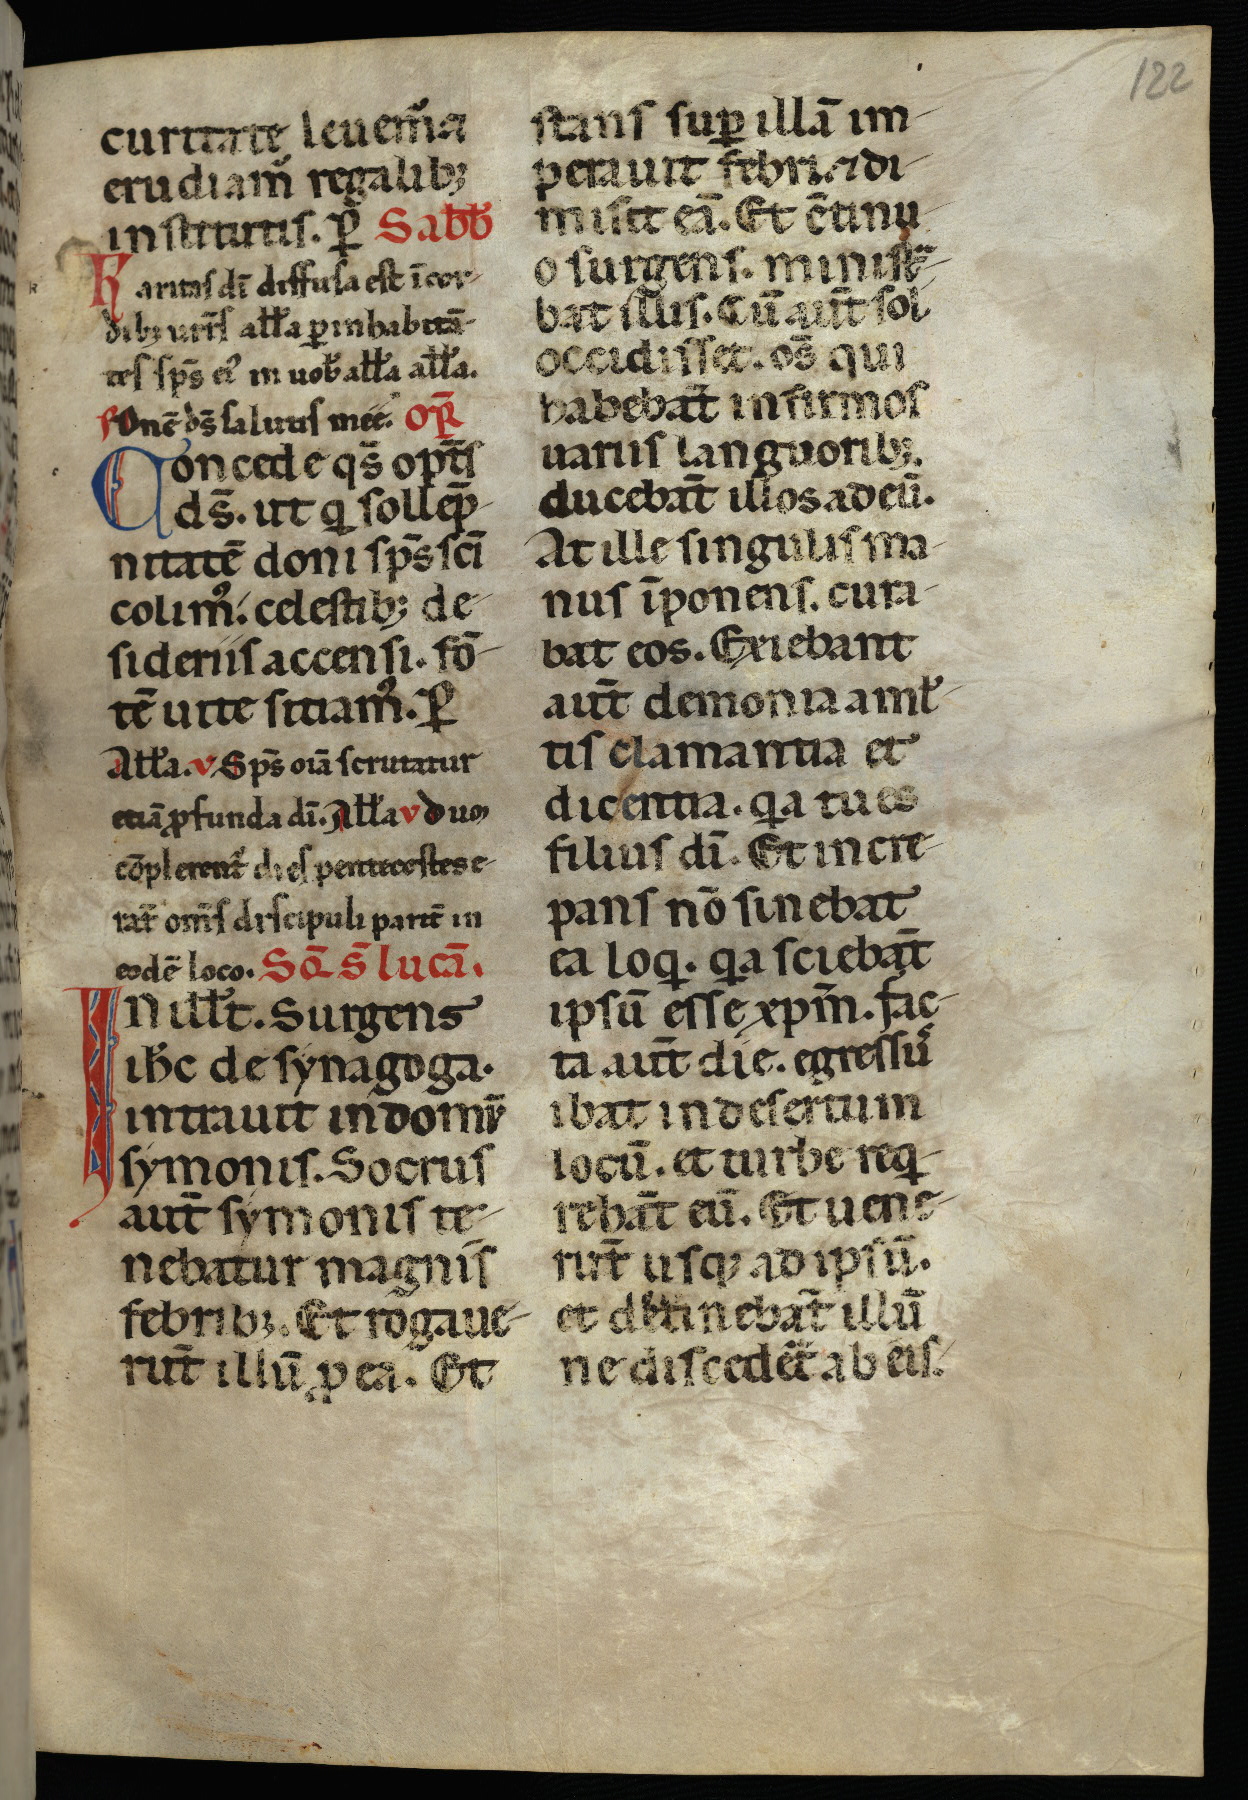 122
curitate leuem̃ &
erudiam᷑ regalib;
institutis. P̃ Sabb̃
Karitas dĩ diffusa est ĩ cor-
dib; urĩs all̃a ꝑ inhabitã-
tes sp̃s eiꝰ in uob̃ all̃a all̃a.
Dn̄e d̄s salutis mee. Or̃
Concede qs̃ opt̃s
d̄s. ut qi sollep̃-
nitatẽ doni sp̃s sc̃i
colimꝰ. celestib; de-
sideriis accensi. fõ-
tẽ uite sitiamꝰ. P̃
All̃a. v Sp̃s oĩa scrutatur
etiã ꝓfunda dĩ. All̃a v dũ
cõplerent᷑ dies pentecostes e-
rãt om̃s discipuli parit̃ in
eodẽ loco. Sc̃d s̃ lucã.
IN ill̃ t. Surgens
ihc̄ de synagoga.
intrauit in domũ
symonis. Socrus
aut̃ symonis te-
nebatur magnis
febrib;. Et rogaue-
rũt illũ ꝓ ea. Et
stans suꝑ illã im-
perauit febri. & di-
misit eã. Et c̃tinu-
o surgens. ministra-
bat illis. Cũ aut̃ sol
occidisset. om̃s qui
habebãt infirmos
uariis languorib;.
ducebãt illos ad eũ.
At ille singulis ma-
nus ĩponens. cura-
bat eos. Exiebant
aut̃ demonia a ml̃-
tis clamantia et
dicentia. qa tu es
filius dĩ. Et incre-
pans nõ sinebat
ea loqi. qa sciebãt
ipsũ esse xp̃m. fac-
ta aut̃ die. egressꝰ
ibat in desertum
locũ. et turbe reqi-
rebãt eũ. Et uene-
rũt usq; ad ipsũ.
et detinebãt illũ
ne discedet̃ ab eis.